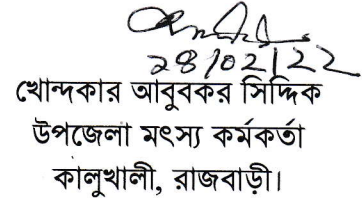 ২৪/০২/২২
খোন্দকার আবুবকর সিদ্দিক
উপজেলা মৎস্য কর্মকর্তা
কালুখালী, রাজবাড়ী।